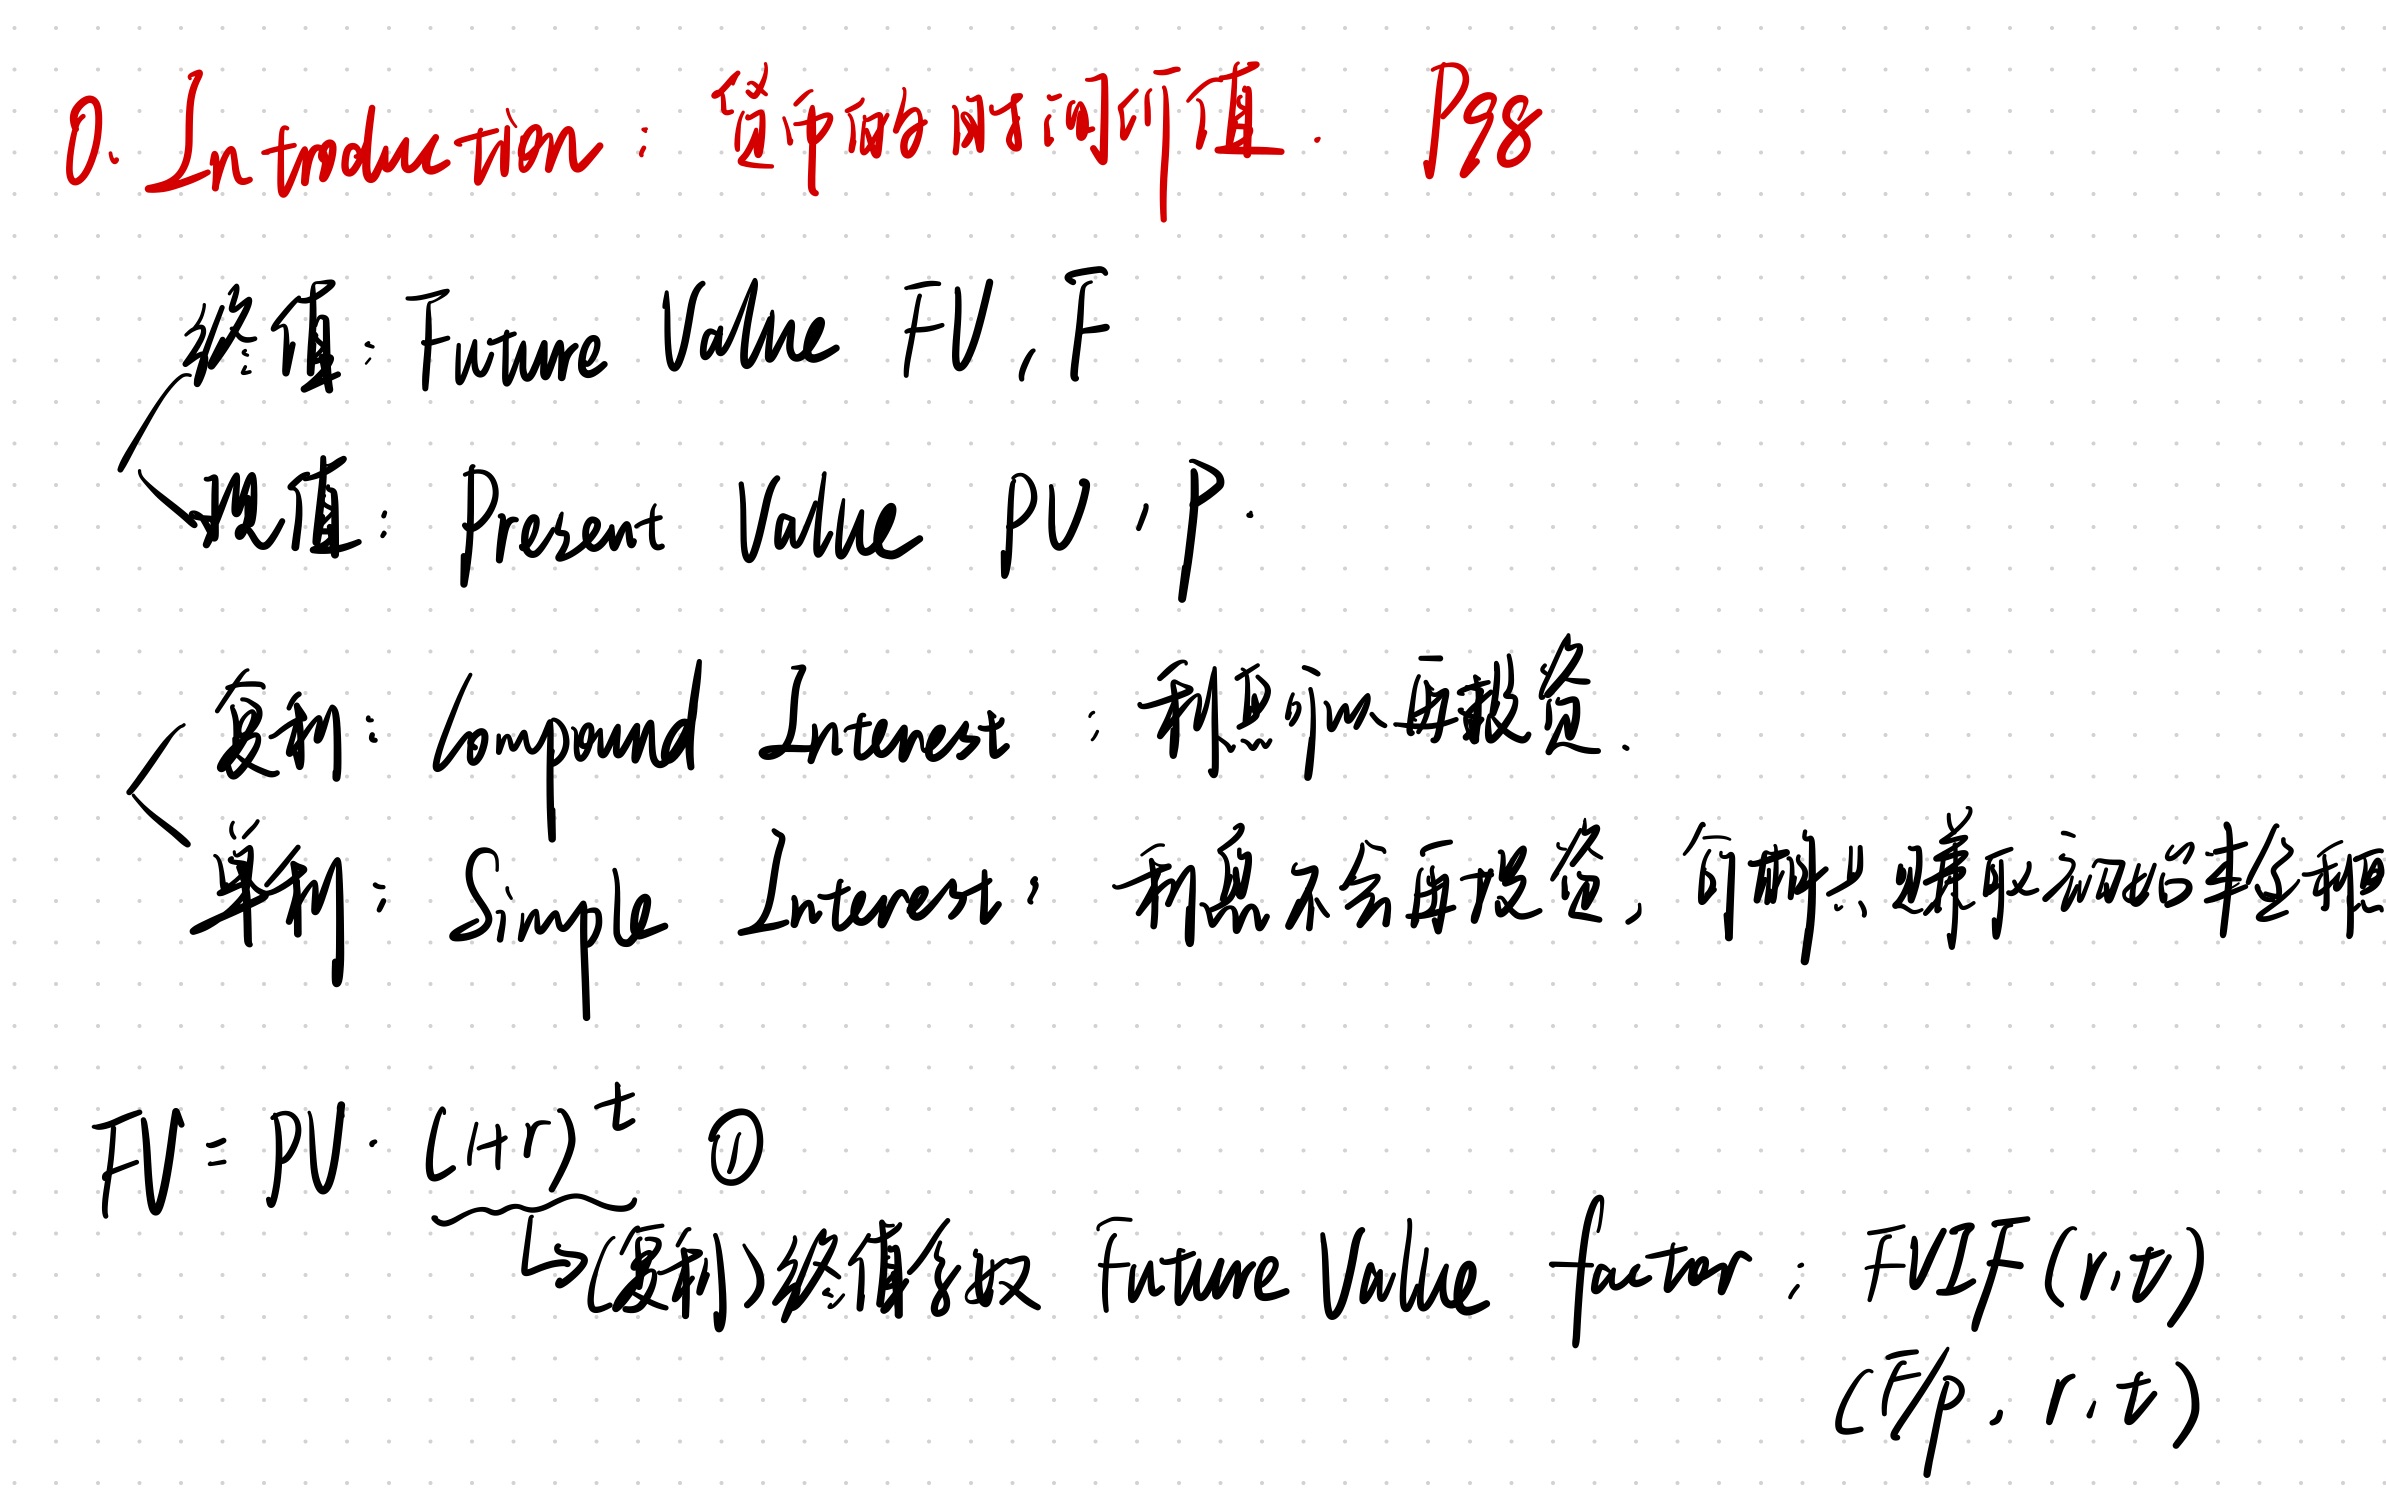 0. Introduction: 货币的时间价值. P98
终值: Future Value FV, F
现值: Present Value PV, P.
复利: Compound Interest: 利息可以再投资.
单利: Simple Interest: 利息不会再投资, 每期只赚取初始本金利息
FV = PV · (1+r)^t ①
↳(复利)终值系数 Future Value factor: FVIF(r,t)
(F/P, r, t)